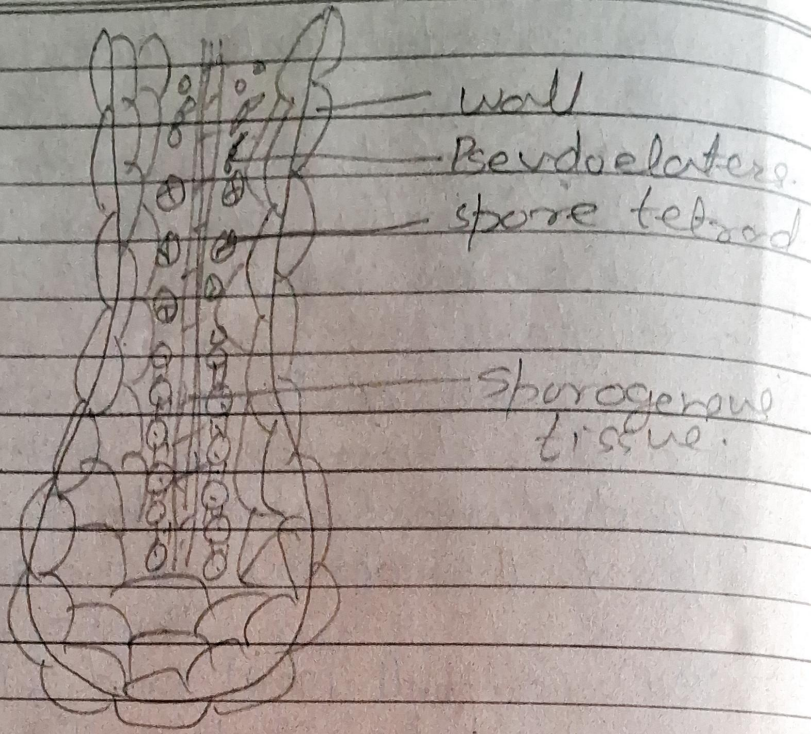 wall
Pseudoelaters.
spore tetrad
Sporogenous
tissue.